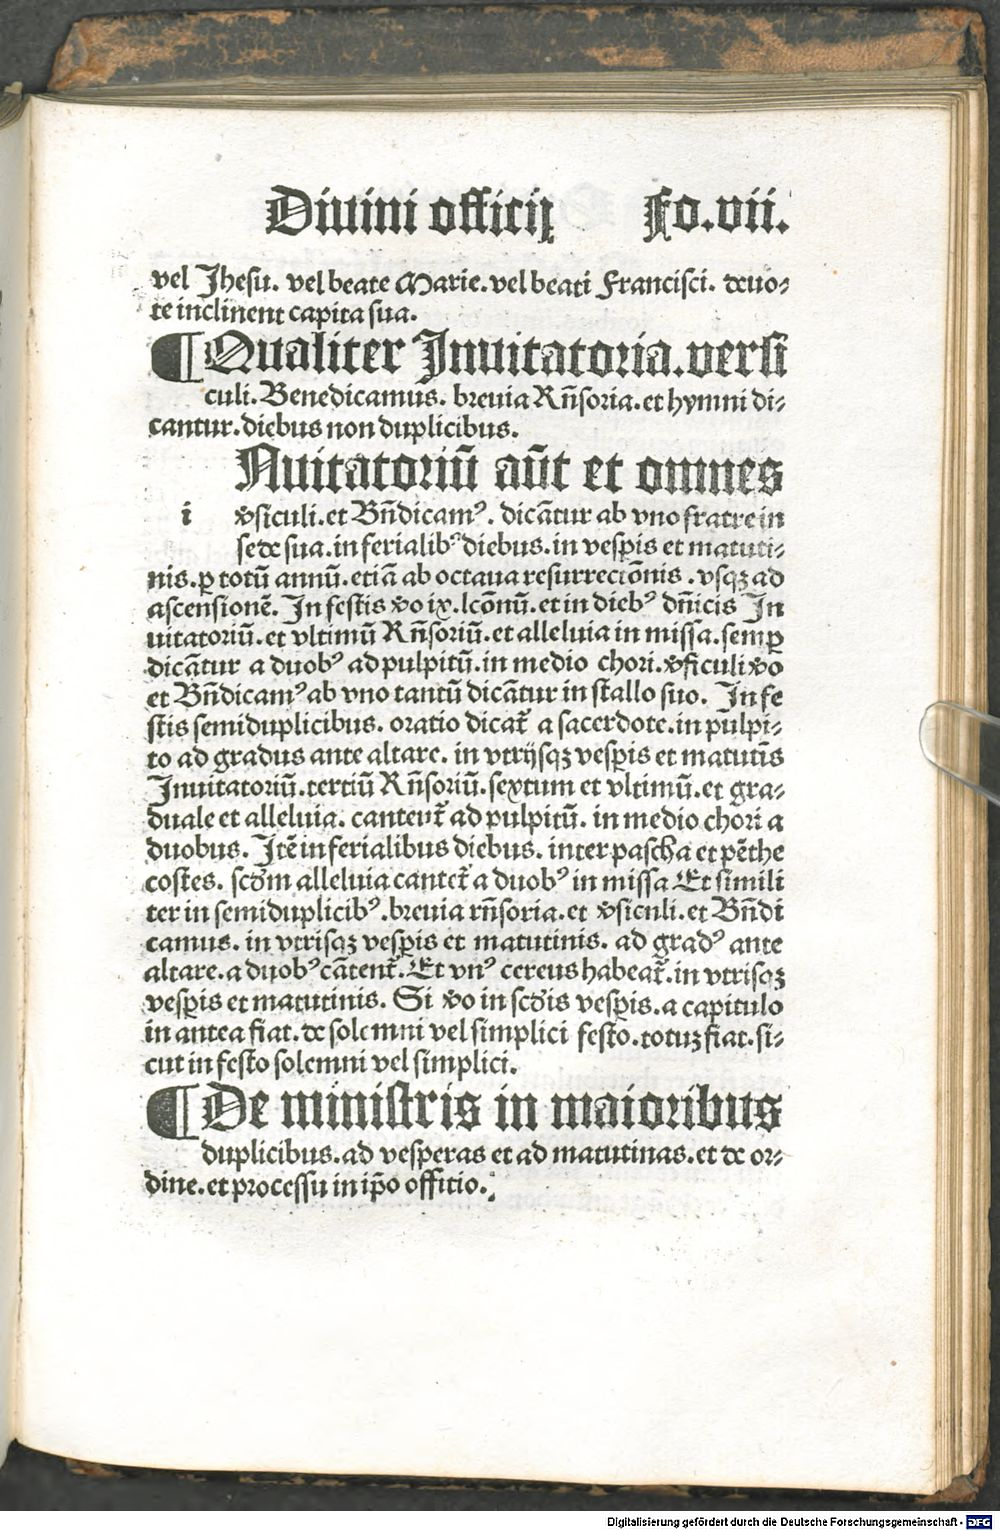 Diuini officij Fo.vii.
vel Jhesu. vel beate Marie. vel beati Francisci. deuo⸗
te inclinent capita sua.
¶ Qualiter Inuitatoria.versi
culi. Benedicamus. breuia Rñsoria. et hymni di⸗
cantur. diebus non duplicibus.
Nuitatoriū aūt et omnes
i ꝟsiculi. et Bñdicamꝰ. dicātur ab vno fratre in
sede sua. in ferialibꝰ diebus. in vesꝑis et matuti⸗
nis. ꝑ totū annū. etiā ab octaua resurrectōnis. vsqꝫ ad
ascensionē. In festis ꝟo ix. lcōnū. et in diebꝰ dñicis In
uitatoriū. et vltimū Rñsoriū. et alleluia in missa. semꝑ
dicātur a duobꝰ ad pulpitū. in medio chori. ꝟsiculi ꝟo
et Bñdicamꝰ ab vno tantū dicātur in stallo suo. In fe
stis semiduplicibus. oratio dicat̄ a sacerdote. in pulpi⸗
to ad gradus ante altare. in vtrijsqꝫ vesꝑis et matutīs
Inuitatoriū. tertiū Rñsoriū. sextum et vltimū. et gra⸗
duale et alleluia. cantent̄ ad pulpitū. in medio chori a
duobus. Itē in ferialibus diebus. inter pascha et pēthe
costes. scdm alleluia cantet̄ a duobꝰ in missa Et simili
ter in semiduplicibꝰ. breuia rñsoria. et ꝟsiculi. et Bñdi
camus. in vtrisqꝫ vesꝑis et matutinis. ad gradꝰ ante
altare. a duobꝰ cātent̄. Et vnꝰ cereus habeat̄. in vtrisqꝫ
vesꝑis et matutinis. Si ꝟo in scdis vesꝑis. a capitulo
in antea fiat. de solemni vel simplici festo. totuꝫ fiat. si⸗
cut in festo solemni vel simplici.
¶ De ministris in maioribus
duplicibus. ad vesperas et ad matutinas. et de or⸗
dine. et processu in ip̄o offitio.
Digitalisierung gefördert durch die Deutsche Forschungsgemeinschaft - DFG